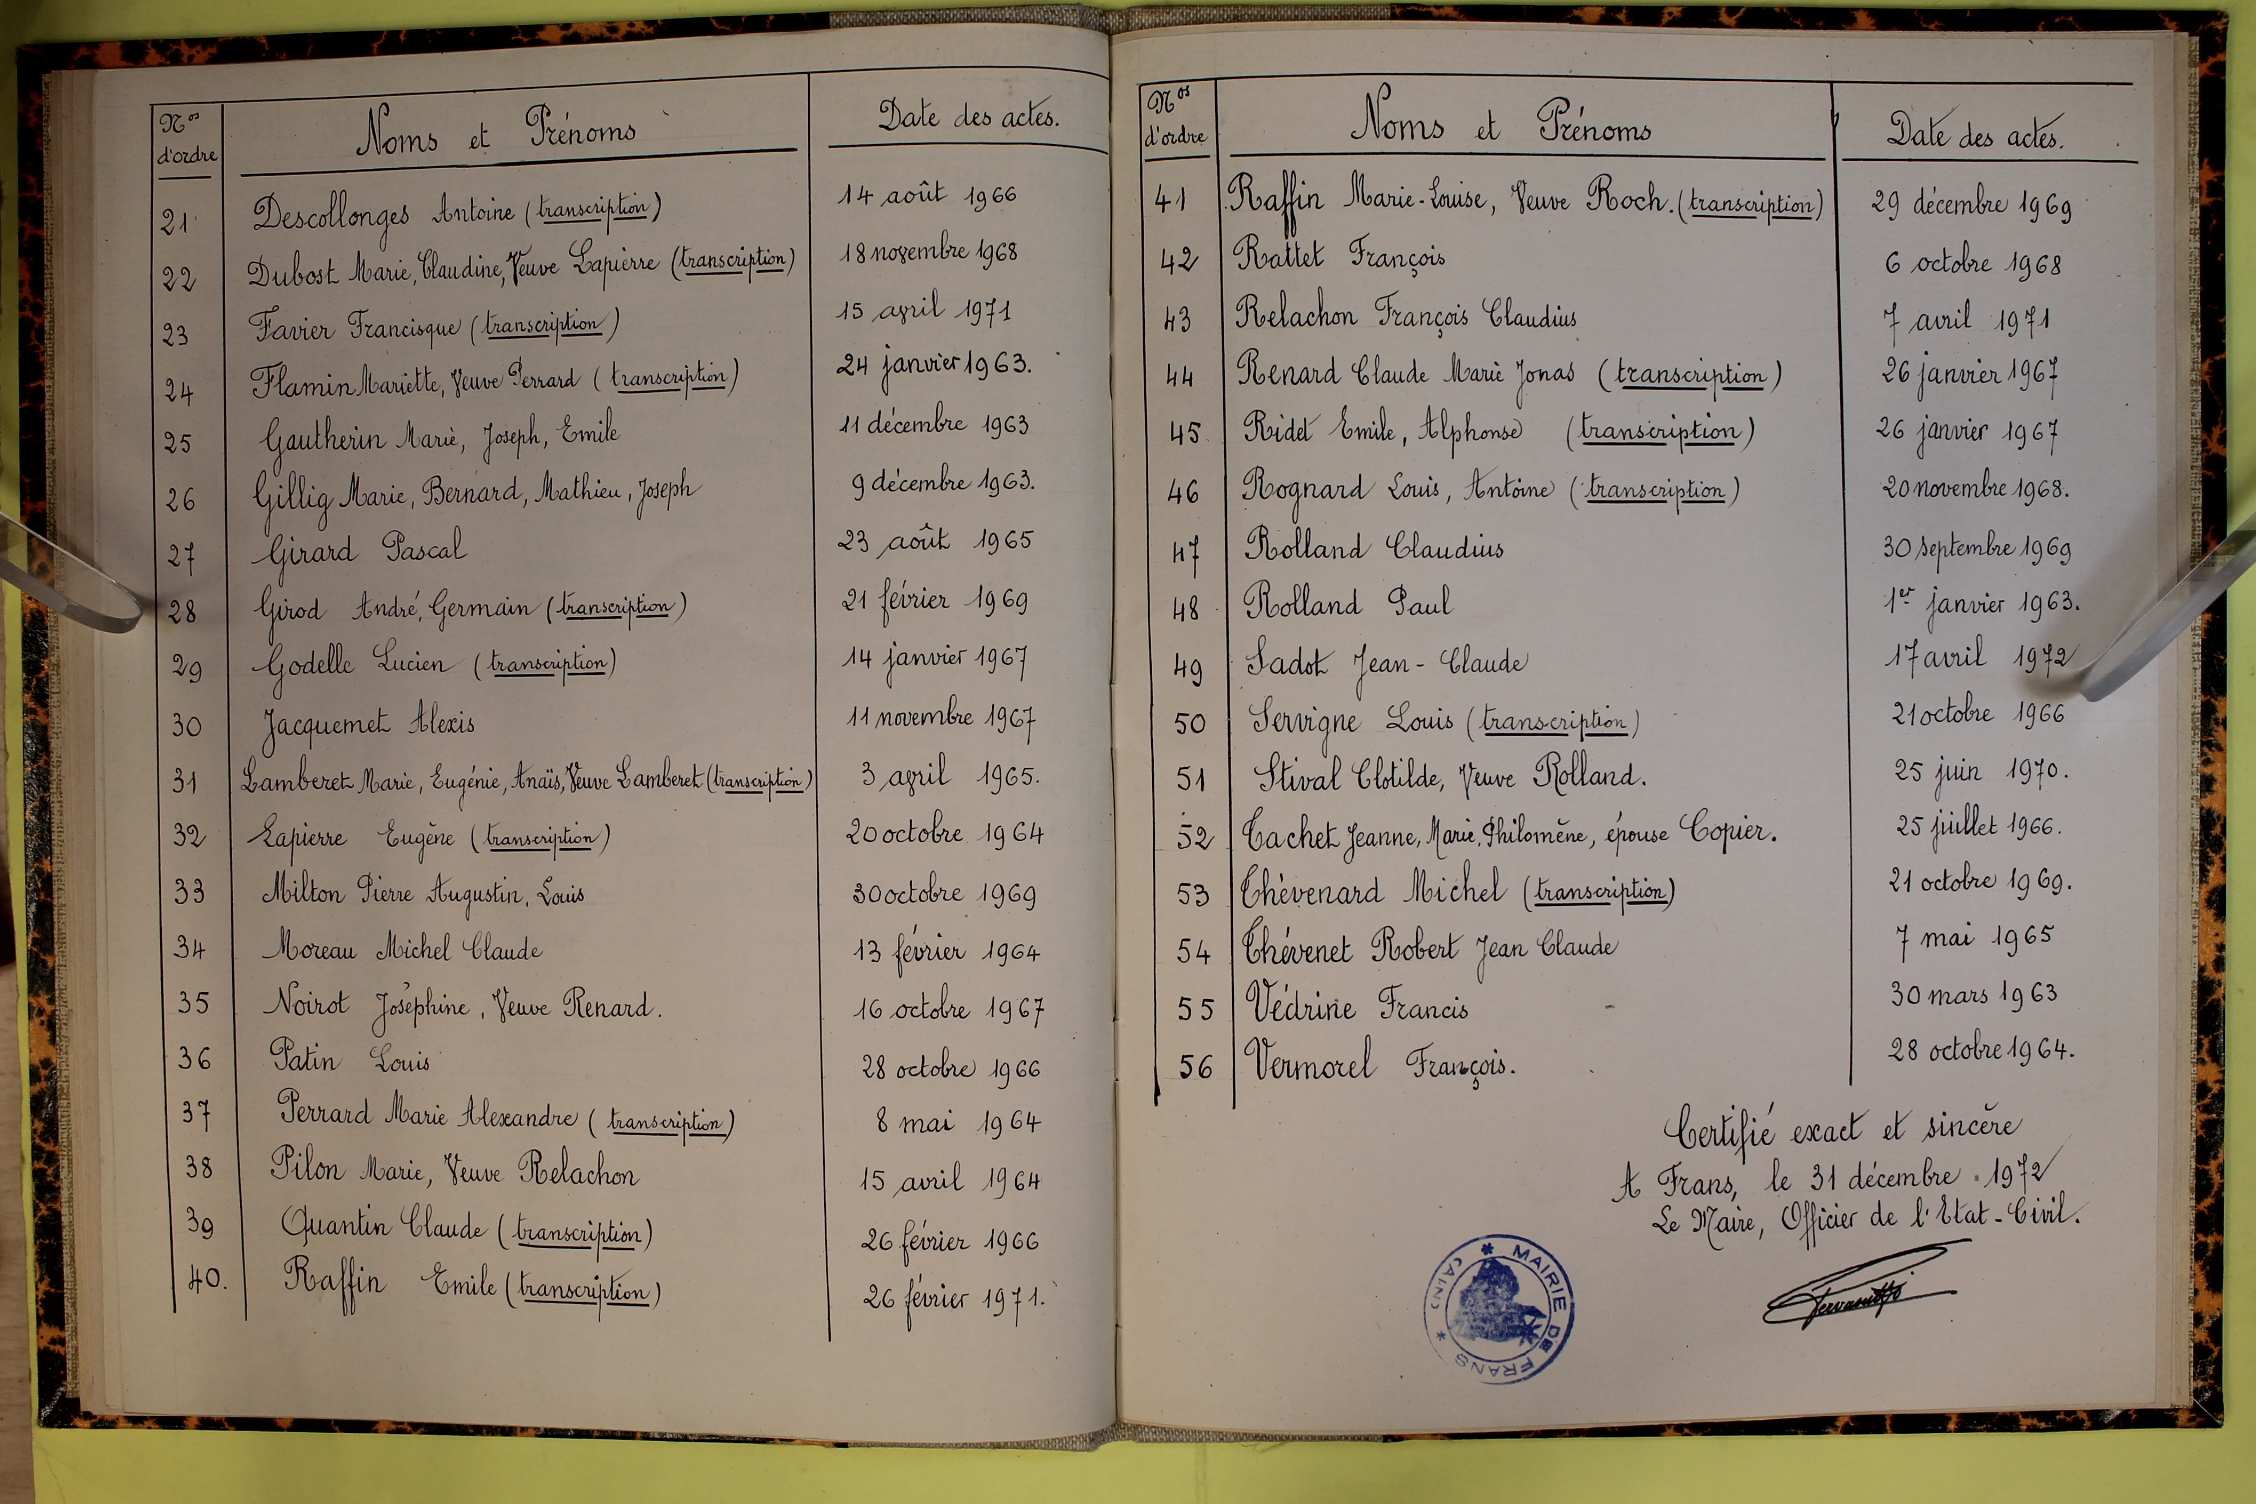 Nos d'ordre Noms et Prénoms Date des actes.
21 Descollonges Antoine (transcription) 14 août 1966
22 Dubost Marie, Claudine, Veuve Lapierre (transcription) 18 novembre 1968
23 Favier Francisque (transcription) 15 avril 1971
24 Flamin Mariette, Veuve Perrard (transcription) 24 janvier 1963.
25 Gautherin Marie, Joseph, Emile 11 décembre 1963
26 Gillig Marie, Bernard, Mathieu, Joseph 9 décembre 1963.
27 Girard Pascal 23 août 1965
28 Girod André, Germain (transcription) 21 février 1969
29 Godelle Lucien (transcription) 14 janvier 1967
30 Jacquemet Alexis 11 novembre 1967
31 Lamberet Marie, Eugénie, Anaïs, Veuve Lamberet (transcription) 3 avril 1965.
32 Lapierre Eugène (transcription) 20 octobre 1964
33 Milton Pierre Augustin, Louis 30 octobre 1969
34 Moreau Michel Claude 13 février 1964
35 Noirot Joséphine, Veuve Renard. 16 octobre 1967
36 Patin Louis 28 octobre 1966
37 Perrard Marie Alexandre (transcription) 8 mai 1964
38 Pilon Marie, Veuve Relachon 15 avril 1964
39 Quantin Claude (transcription) 26 février 1966
40. Raffin Emile (transcription) 26 février 1971.
Nos d'ordre Noms et Prénoms Date des actes.
41 Raffin Marie-Louise, Veuve Roch. (transcription) 29 décembre 1969
42 Rattet François 6 octobre 1968
43 Relachon François Claudius 7 avril 1971
44 Renard Claude Marie Jonas (transcription) 26 janvier 1967
45 Ridet Emile, Alphonse (transcription) 26 janvier 1967
46 Rognard Louis, Antoine (transcription) 20 novembre 1968.
47 Rolland Claudius 30 septembre 1969
48 Rolland Paul 1er janvier 1963.
49 Sadot Jean-Claude 17 avril 1972
50 Servigne Louis (transcription) 21 octobre 1966
51 Stival Clotilde, Veuve Rolland. 25 juin 1970.
52 Tachet Jeanne, Marie, Philomène, épouse Copier. 25 juillet 1966.
53 Thévenard Michel (transcription) 21 octobre 1969.
54 Thévenet Robert Jean Claude 7 mai 1965
55 Védrine Francis 30 mars 1963
56 Vermorel François. 28 octobre 1964.
Certifié exact et sincère
A Frans, le 31 décembre 1972
Le Maire, Officier de l'Etat-Civil.
* MAIRIE DE FRANS * (AIN)